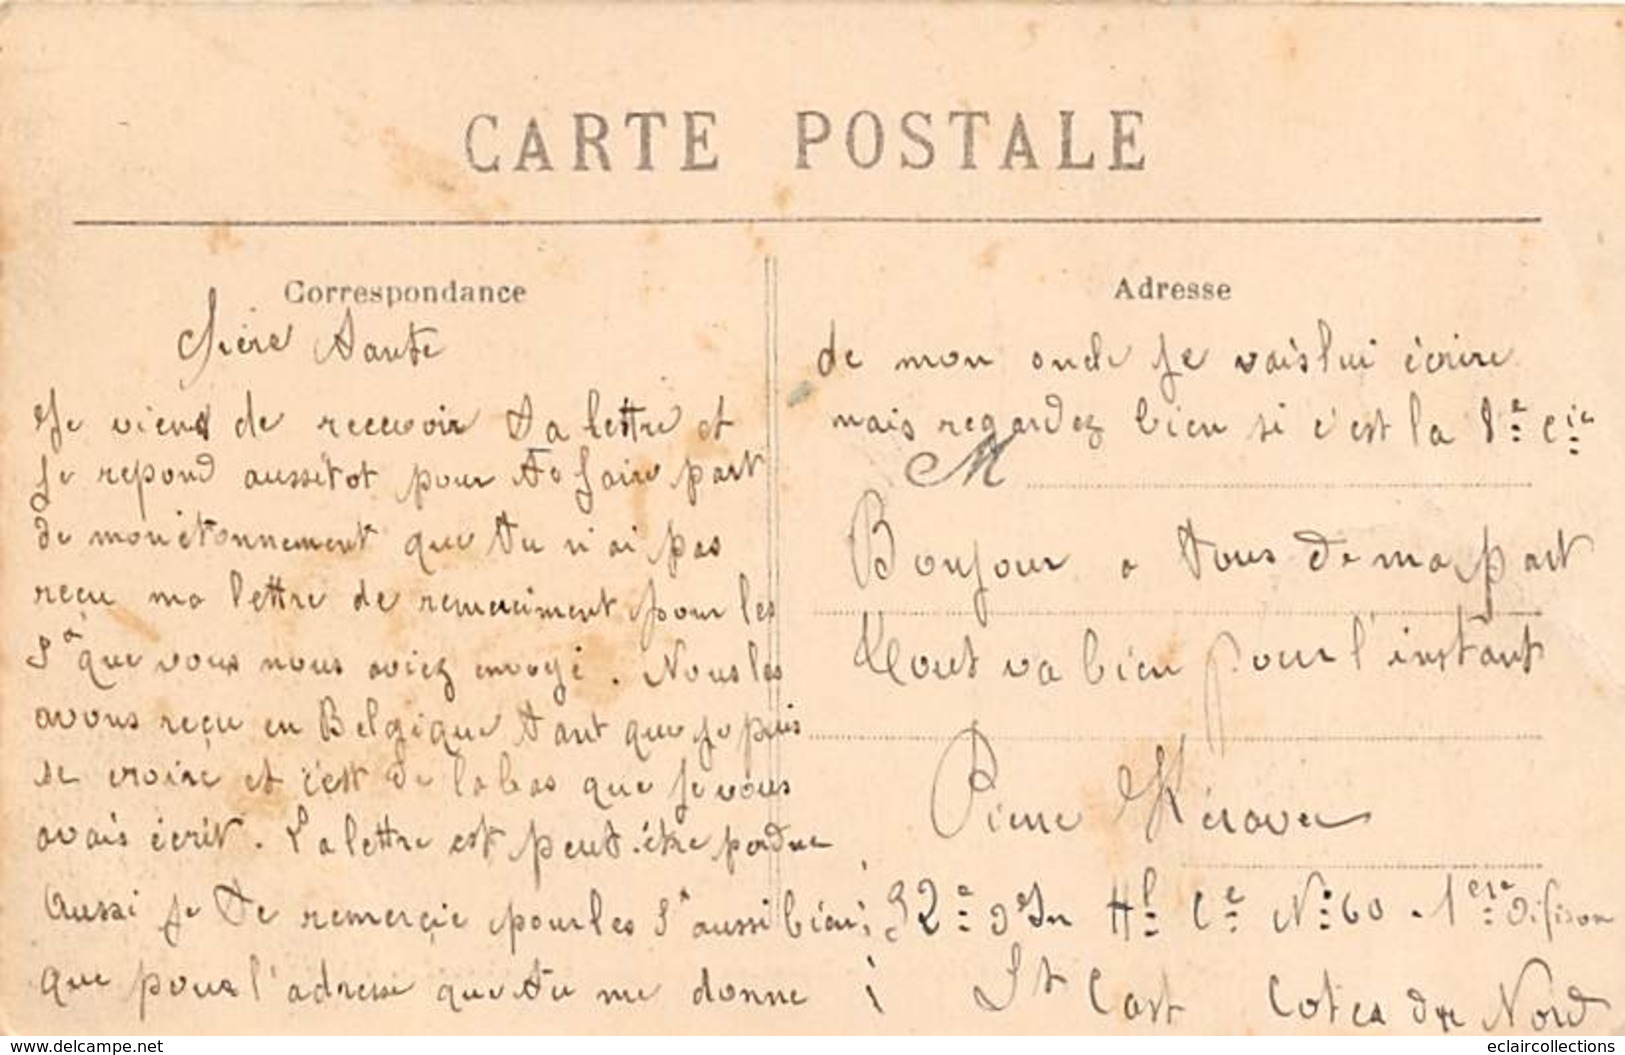 CARTE POSTALE
Correspondance
Chère Tante
Je viens de recevoir ta lettre et
je repond aussitot pour te faire part
de mon étonnement que tu n'ai pas
reçu ma lettre de remerciment pour les
5ᶠ que vous nous aviez envoyé. Nous les
avons reçu en Belgique tant que je puis
le croire et c'est de la bas que je vous
avais écrit. La lettre est peut-être perdue
Aussi je te remerçie pour les 5ᶠ aussi bien
que pour l'adresse que tu me donne
Adresse
de mon oncle je vais lui écrire
mais regardez bien si c'est la 1ᵉ Cie
M
Bonjour a tous de ma part
tout va bien pour l'instant
Pierre
32ᵉ Hˡ Cᵉ Nº 60. 1ᵉʳᵉ Difison
St Cast Cotes du Nord
delcampe.net
eclaircollections